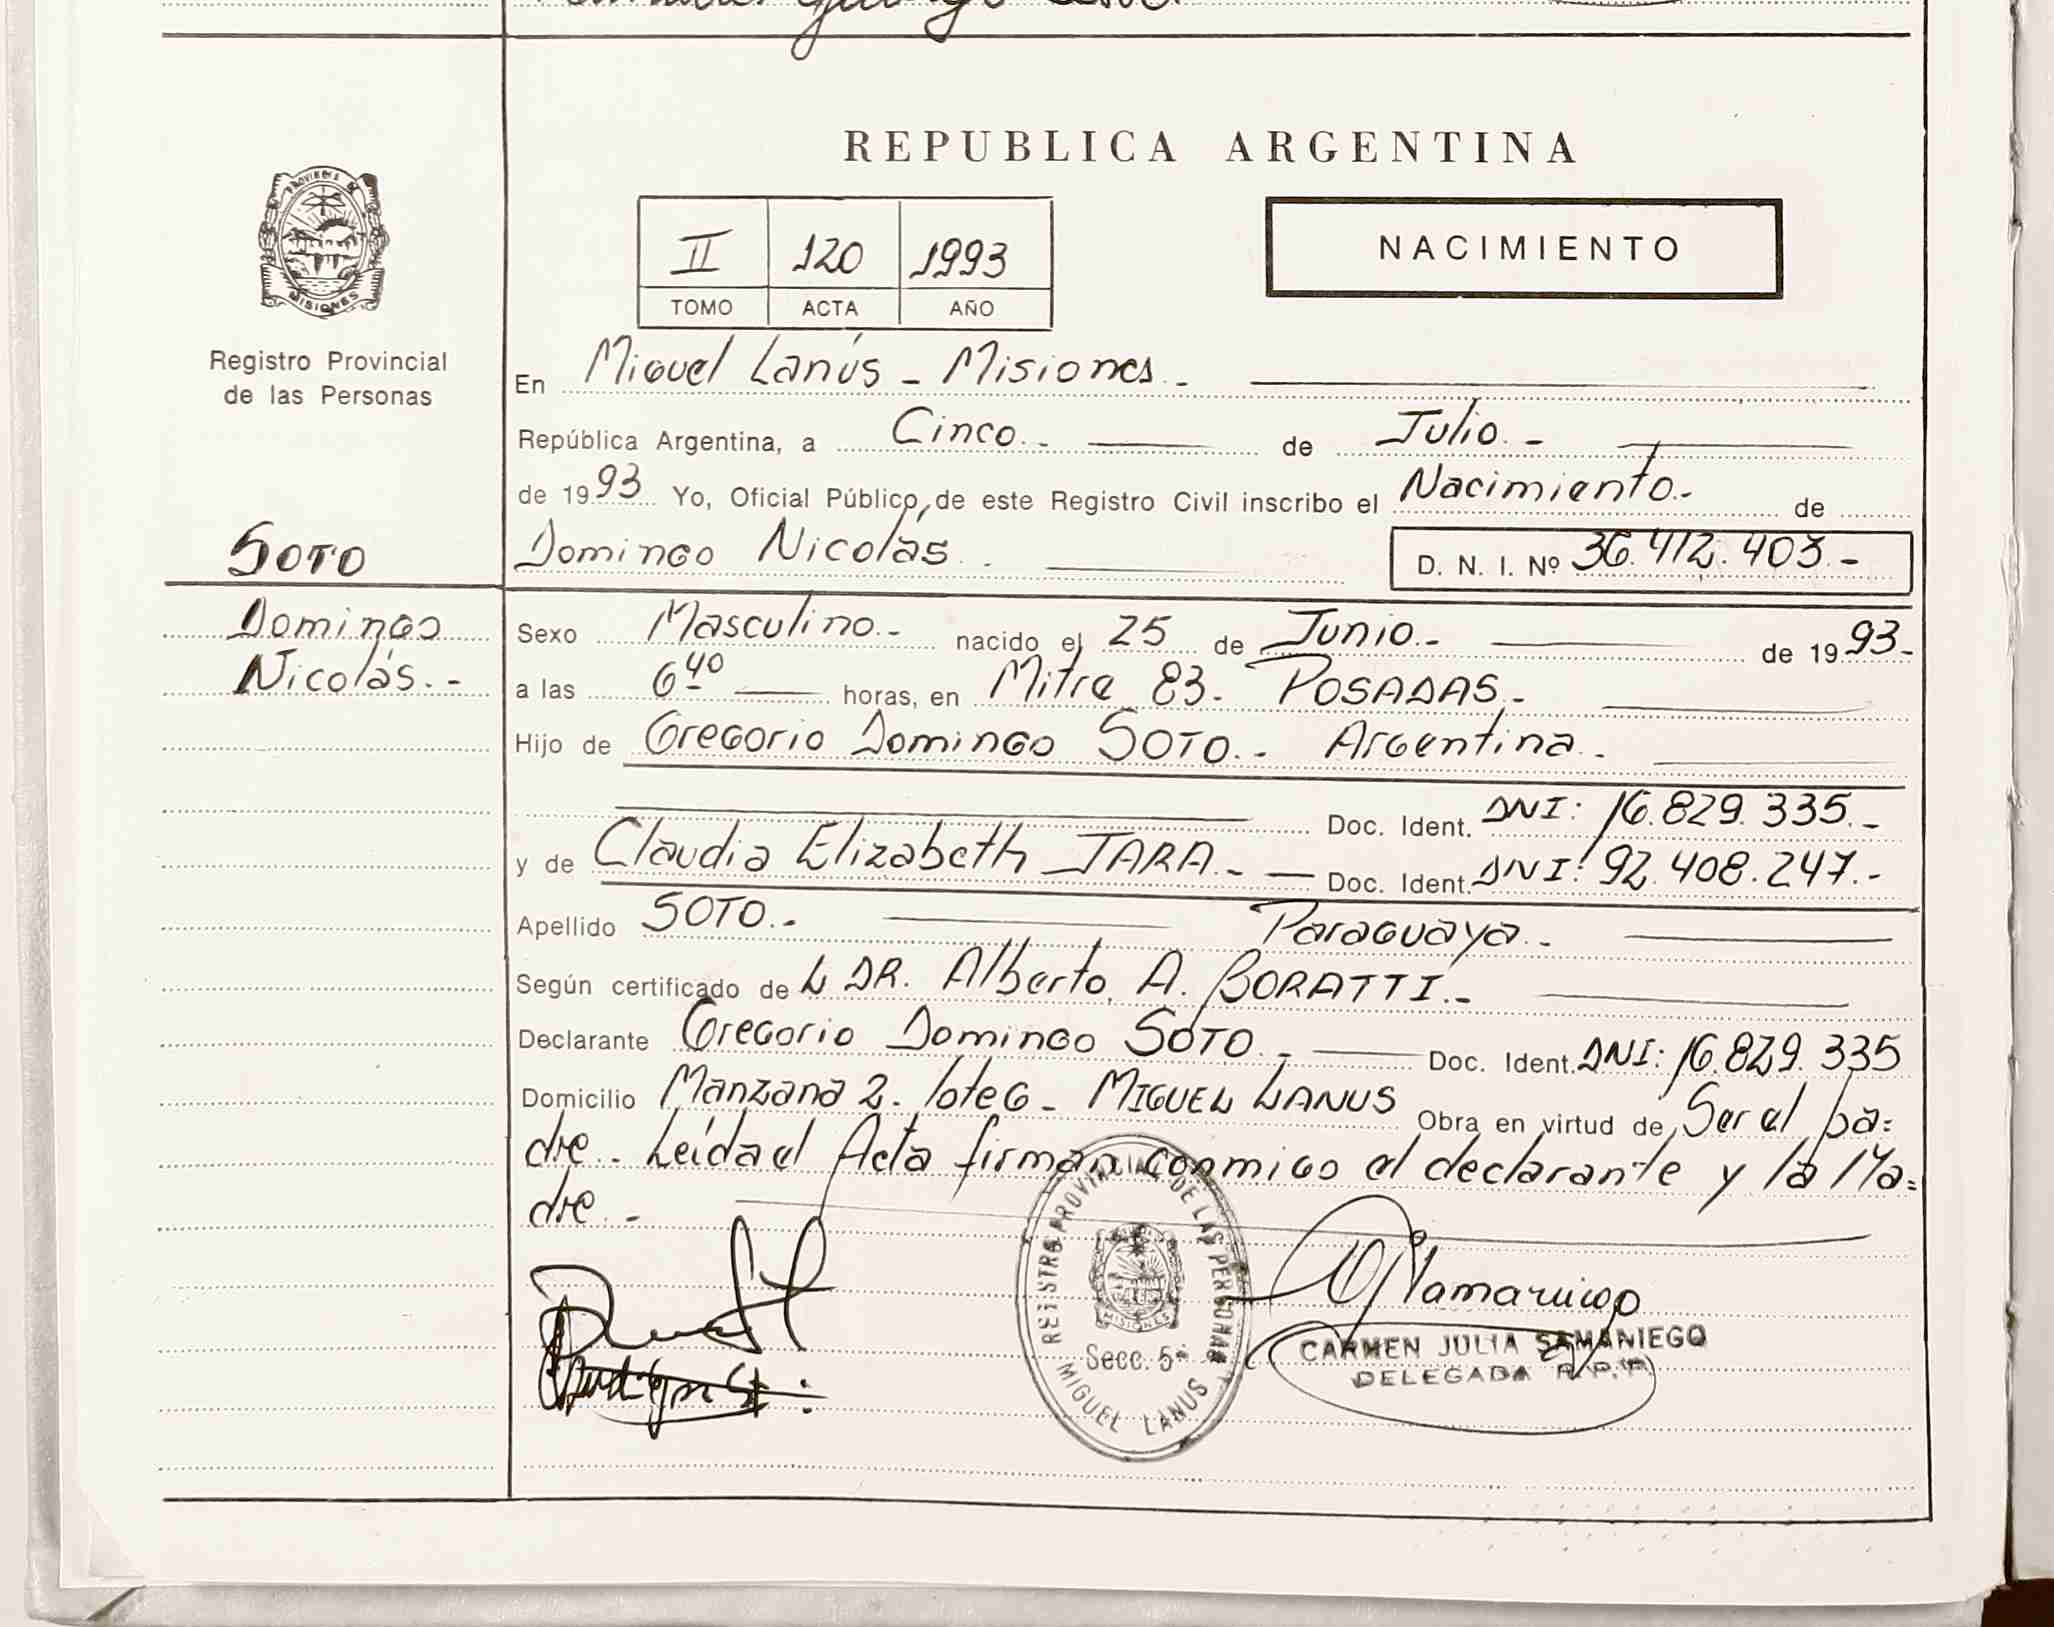 REPUBLICA ARGENTINA
PROVINCIA DE
MISIONES
II 120 1993
TOMO ACTA AÑO
NACIMIENTO
Registro Provincial
de las Personas
En Miguel Lanús - Misiones.-
República Argentina, a Cinco.- de Julio.-
de 1993 Yo, Oficial Público, de este Registro Civil inscribo el Nacimiento.- de
SOTO
Domingo Nicolás.
D. N. I. Nº 36.412.403.-
Domingo
Nicolás.-
Sexo Masculino.- nacido el 25 de Junio.- de 1993.-
a las 6 40 horas, en Mitre 83. POSADAS.-
Hijo de Gregorio Domingo SOTO.- Argentina.-
Doc. Ident. DNI: 16.829.335.-
y de Claudia Elizabeth JARA.- Doc. Ident. DNI: 92.408.247.-
Apellido SOTO.- Paraguaya.-
Según certificado de L DR. Alberto A. BORATTI.-
Declarante Gregorio Domingo SOTO.- Doc. Ident. DNI: 16.829.335
Domicilio Manzana 2. lote 6 - MIGUEL LANUS Obra en virtud de Ser el pa=
dre. Leída el Acta firman conmigo el declarante y la Ma=
dre.-
REGISTRO PROVINCIAL DE LAS PERSONAS
MISIONES
Secc. 5ª
MIGUEL LANUS
CARMEN JULIA SAMANIEGO
DELEGADA R.P.P.